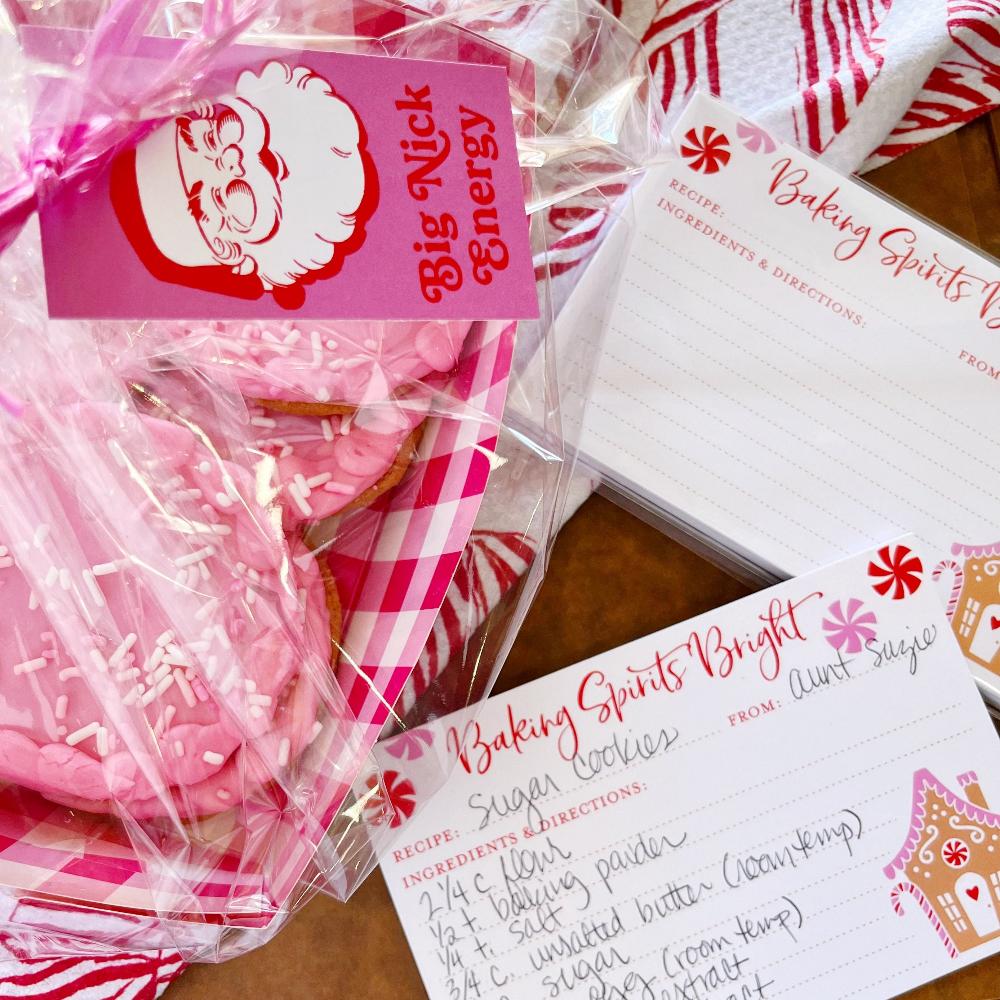 Big Nick
Energy
Baking Spirits B
RECIPE:
INGREDIENTS & DIRECTIONS:
FROM
Baking Spirits Bright
RECIPE: Sugar Cookies
FROM: aunt Suzie
INGREDIENTS & DIRECTIONS:
2 1/4 c flour
1/2 t. baking powder
1/4 t. salt
3/4 c. unsalted butter (room temp)
sugar
(room temp)
extract